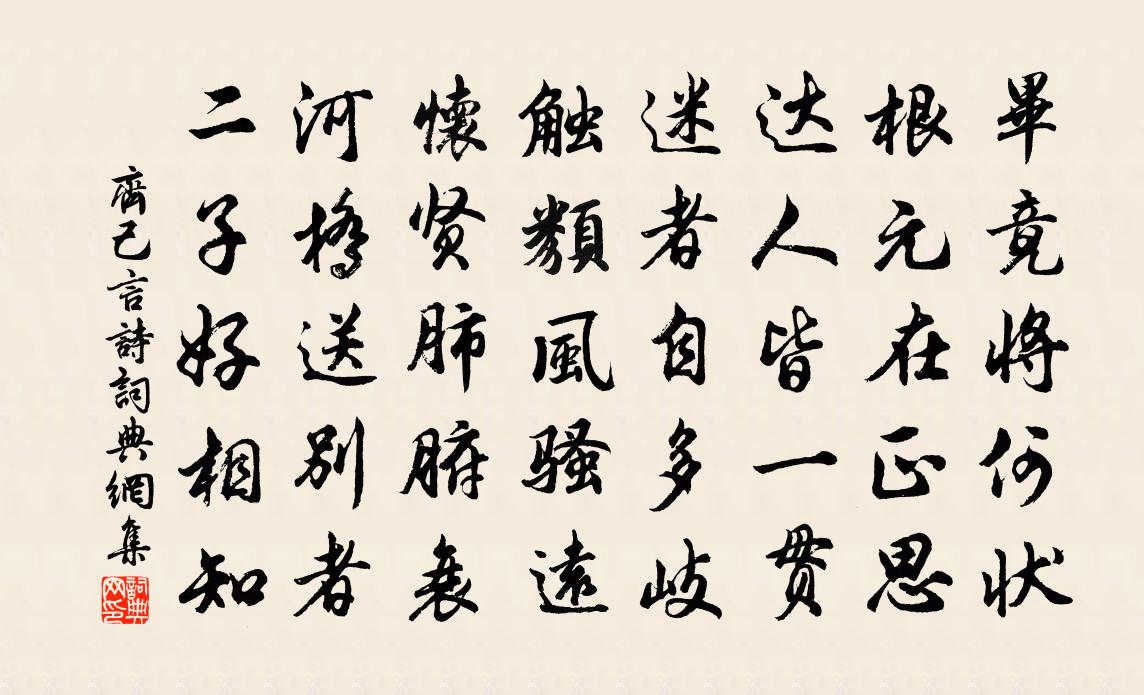 畢竟將何狀
根元在正思
达人皆一贯
迷者自多岐
触類風骚遠
懷贤肺腑衰
河橋送别者
二子好相知
齊己言詩詞典網集
詞典網印